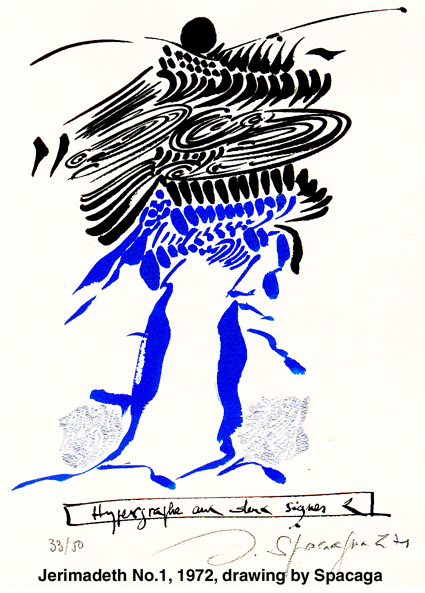 Hypergraphe aux deux signes
33/50
J. Spacagna
Jerimadeth No.1, 1972, drawing by Spacaga